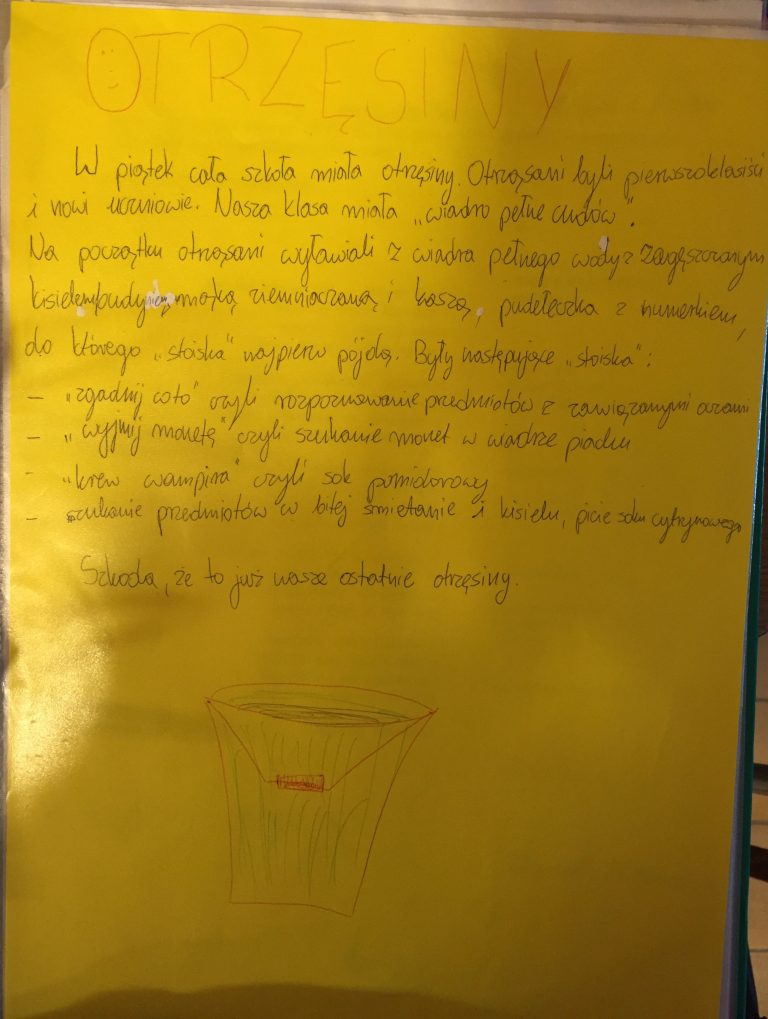 OTRZĘSINY
W piątek cała szkoła miała otrzęsiny. Otrząsani byli pierwszoklasiści
i nowi uczniowie. Nasza klasa miała „wiadro pełne cudów".
Na początku otrząsani wyławiali z wiadra pełnego wody z zagęszczonym
kisielem, budyniem, mąką ziemniaczaną i kaszą, pudełeczka z numerkiem,
do którego „stoiska" najpierw pójdą. Były następujące „stoiska":
- „zgadnij co to" czyli rozpoznawanie przedmiotów z zawiązanymi oczami
- „wyjmij monetę" czyli szukanie monet w wiadrze piachu
- „krew wampira" czyli sok pomidorowy
- szukanie przedmiotów w bitej śmietanie i kisielu, picie soku cytrynowego
Szkoda, że to już nasze ostatnie otrzęsiny.